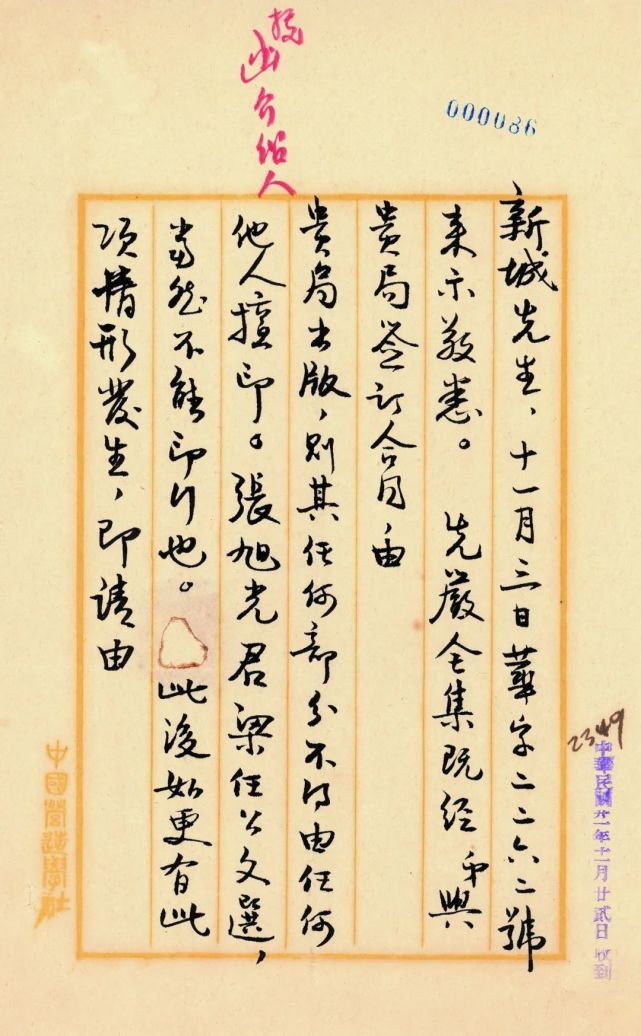 000086
介紹人
新城先生，十一月三日華字二二六二號
来示敬悉。 先嚴全集既经弟與
貴局签订合同，由
貴局出版，则其任何部分不得由任何
他人擅印。張旭光君梁任公文選，
當然不能印行也。 此後如更有此
项情形發生，即请由
中國營造學社
2349
中華民國廿一年十一月廿貳日收到